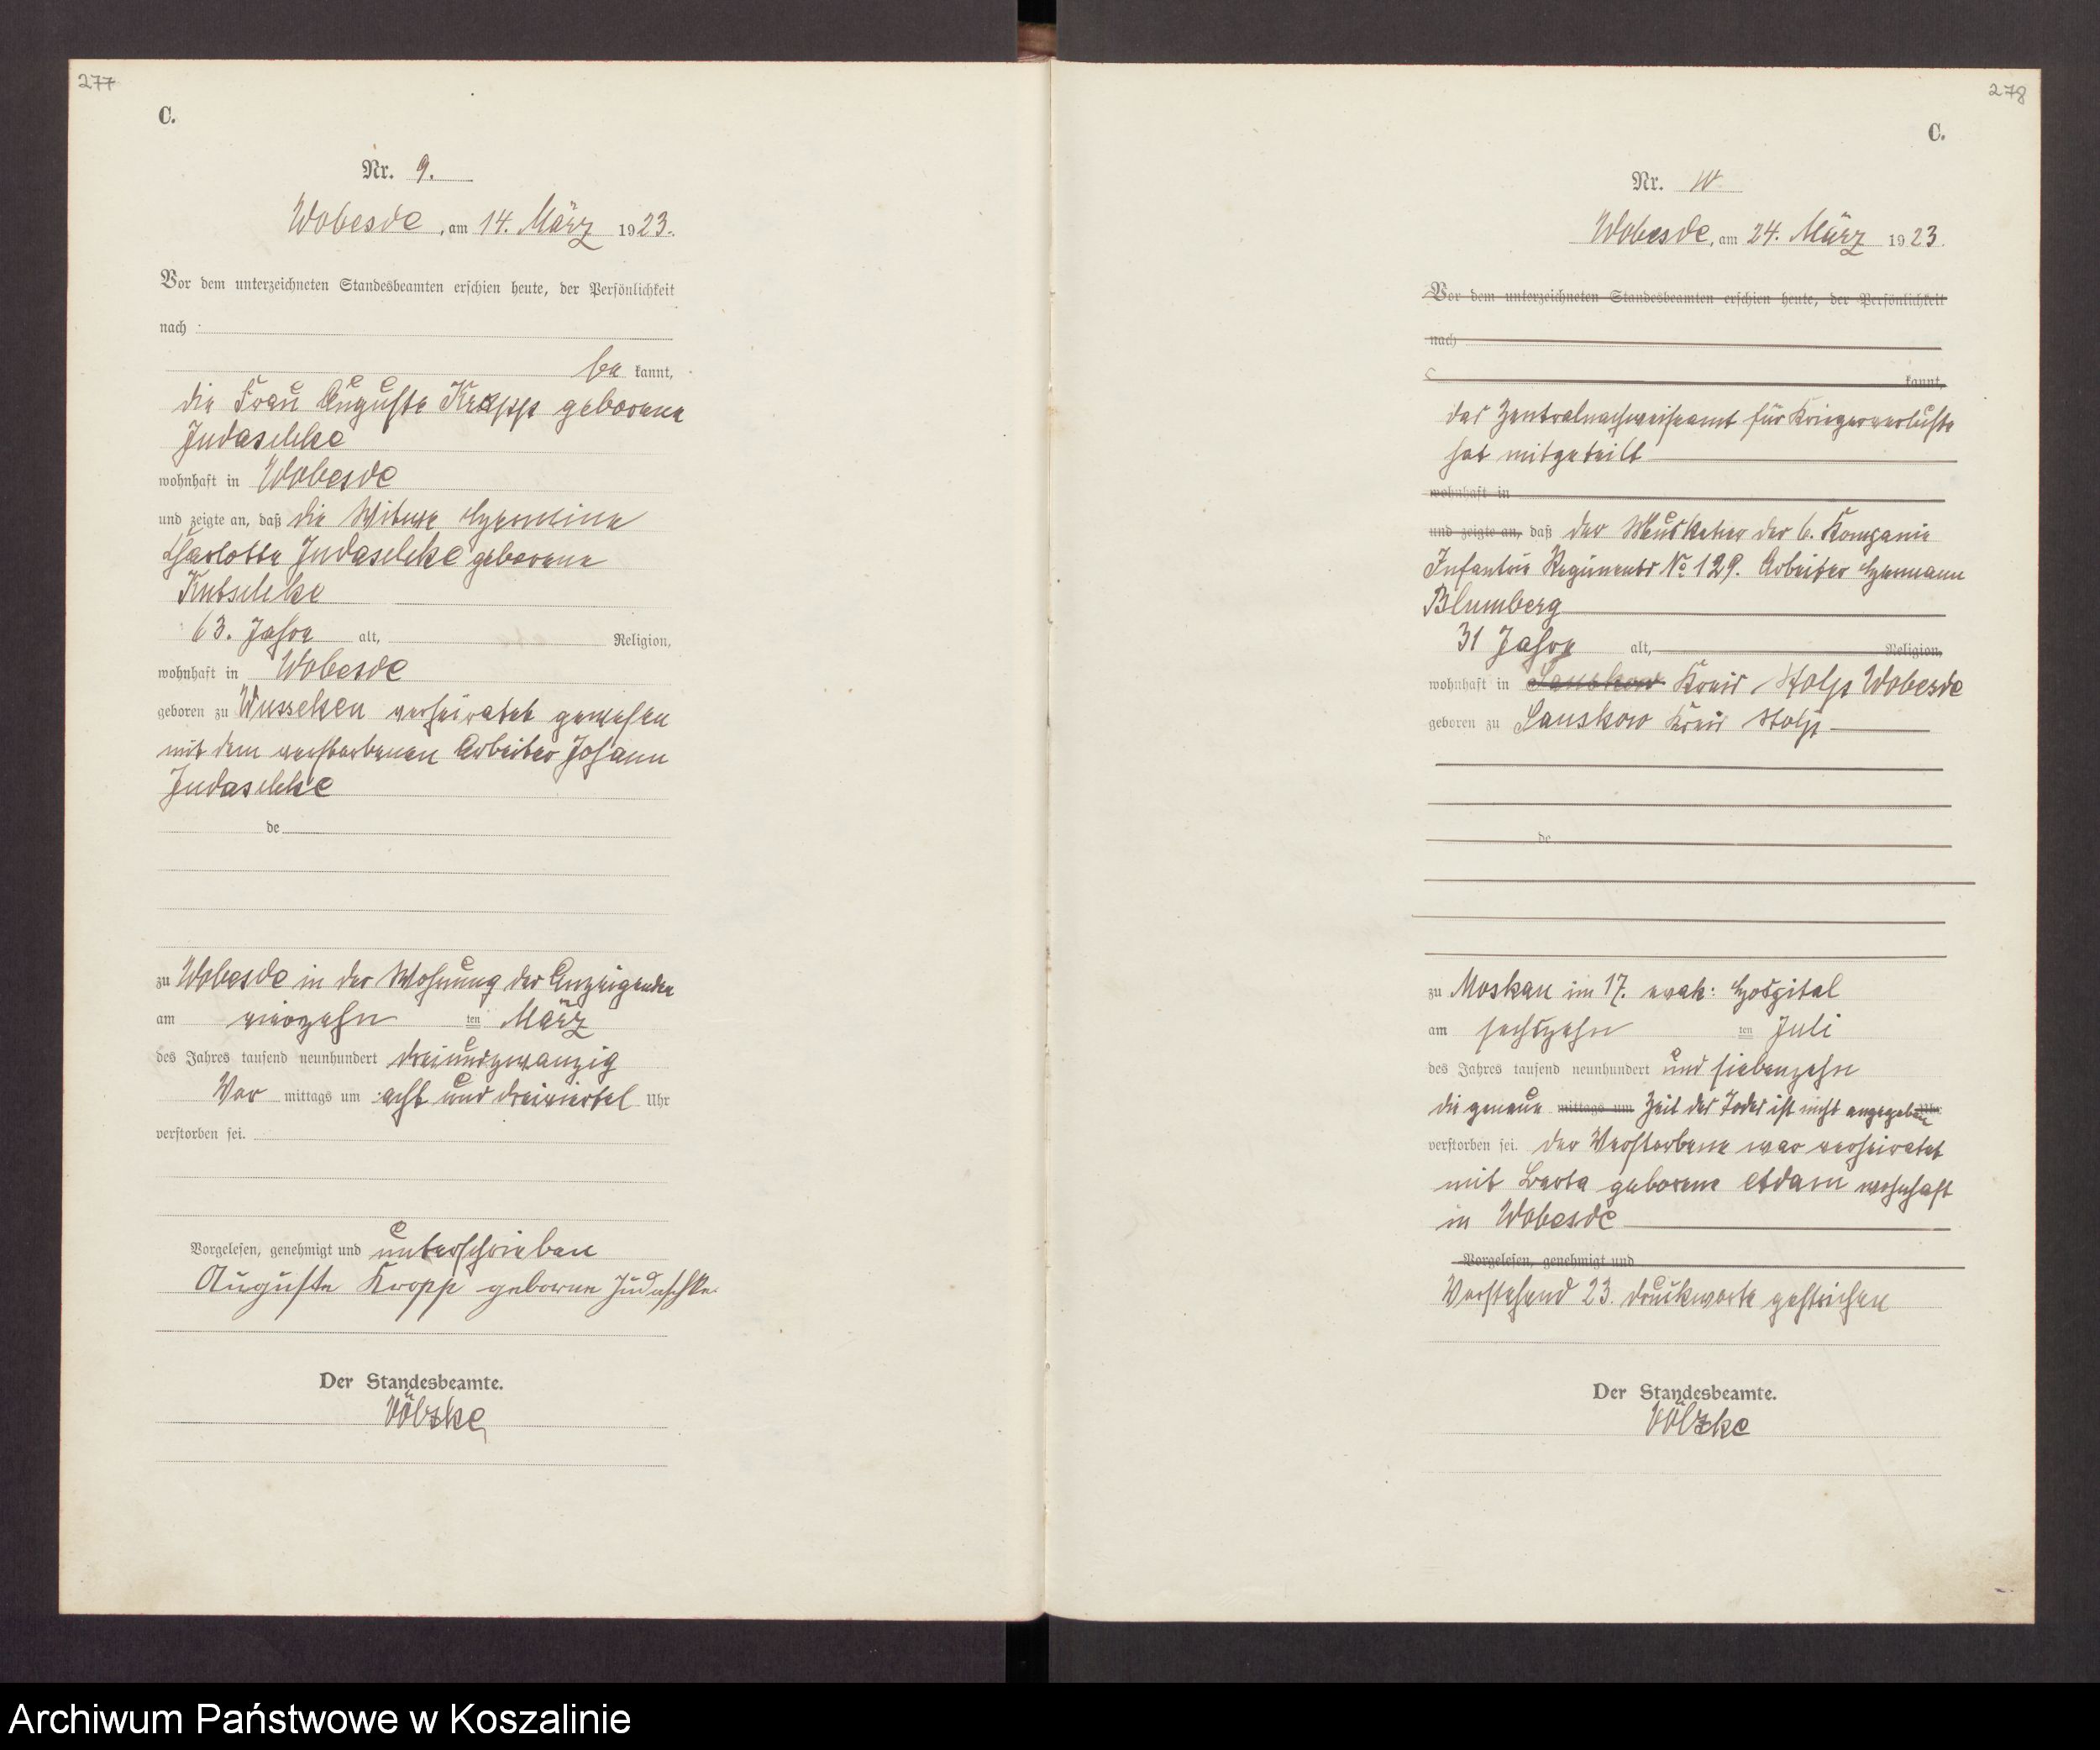 277
C.
Nr. 9.
Wobesde, am 14. März 1923.
Vor dem unterzeichneten Standesbeamten erschien heute, der Persönlichkeit
nach
be kannt,
die Frau Auguste Kropp geborene
Judaschke
wohnhaft in Wobesde
und zeigte an, daß die Witwe Hermine
Charlotte Judaschke geborene
Kutschke
63. Jahre alt, Religion,
wohnhaft in Wobesde
geboren zu Wusseken verheiratet gewesen
mit dem verstorbenen Arbeiter Johann
Judaschke
de
zu Wobesde in der Wohnung der Anzeigenden
am vierzehn ten März
des Jahres tausend neunhundert dreiundzwanzig
Vor mittags um acht und dreiviertel Uhr
verstorben sei.
Vorgelesen, genehmigt und unterschrieben
Auguste Kropp geborne Judaschke.
Der Standesbeamte.
Völzke
278
C.
Nr. 10
Wobesde, am 24. März 1923.
Vor dem unterzeichneten Standesbeamten erschien heute, der Persönlichkeit
nach
kannt,
das Zentralnachweiseamt für Kriegerverluste
hat mitgeteilt
wohnhaft in
und zeigte an, daß der Musketier der 6. Kompanie
Infantrie Regiments No 129. Arbeiter Hermann
Blumberg
31 Jahre alt, Religion,
wohnhaft in Lauskow Kreis Stolp Wobesde
geboren zu Lauskow Kreis Stolp
de
zu Moskau im 17. evak: Hospital
am sechszehn ten Juli
des Jahres tausend neunhundert und siebenzehn
die genaue mittags um Zeit des Todes ist nicht angegeben Uhr
verstorben sei. Der Verstorbene war verheiratet
mit Berta geborene wohnhaft
in Wobesde
Vorgelesen, genehmigt und
Vorstehend 23. Druckworte gestrichen
Der Standesbeamte.
Völzke
Archiwum Państwowe w Koszalinie